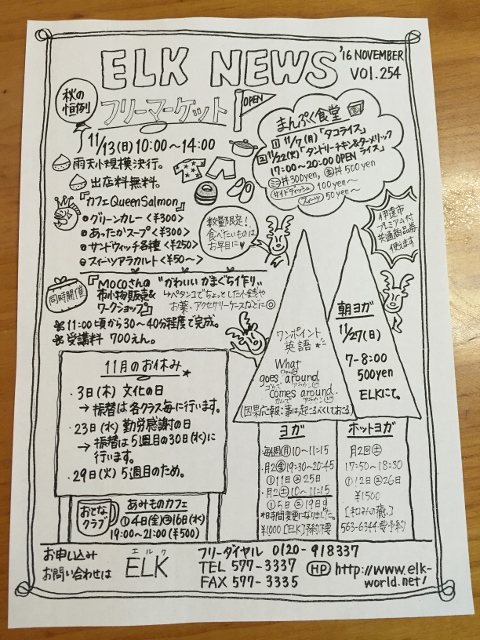 ELK NEWS
'16 NOVEMBER
VOl.254
秋の
恒例
フリーマーケット
OPEN
11/13(日)10:00〜14:00
雨天小規模決行。
出店料無料。
『カフェQueenSalmon』
グリーンカレー<¥300>
あったかスープ<¥300>
サンドウィッチ各種<¥250>
スィーツアラカルト<¥50〜>
数量限定!
食べたいものは
お早目に
まんぷく食堂
①11/7(月)「タコライス」
②11/22(火)「タンドリーチキン&ターメリック
ライス」
17:00〜20:00 OPEN
300yen、500yen
サイドディッシュ 100yen〜
スィーツ 50yen〜
伊達市
プレミアム付
共通商品券
使えます
同時開催
『Mocoさんの
布小物販売&
ワークショップ』
"かわいい がまぐち作り"
ペタンコでちょっとした小銭や
お薬、アクセサリーケースなどに◎
11:00頃から30〜40分程度で完成。
受講料 700えん。
ワンポイント
英語
What
goes around
comes around.
朝ヨガ
11/27(日)
7-8:00
500yen
ELKにて。
11月のお休み
・3日(木) 文化の日
→振替は各クラス毎に行います。
・23日(水)勤労感謝の日
→振替は5週目の30日(水)に
行います。
・29日(火)5週目のため。
ヨガ
毎週(月)10〜11:15
月2(金)19:30〜20:45
①11日②25日
月2(土)10〜11:15
①5日②19日
¥1000[ELK]
ホットヨガ
月2回(土)
17:30〜18:30
①12日②26日
¥1500
563-6344
おとなクラブ
あみものカフェ
①4日(金)②16日(水)
19:00〜21:00(¥500)
お申し込み
お問い合わせは
エルク
ELK
フリーダイヤル 0120-918337
TEL 577-3337
FAX 577-3335
HP http://www.elk-
world.net/